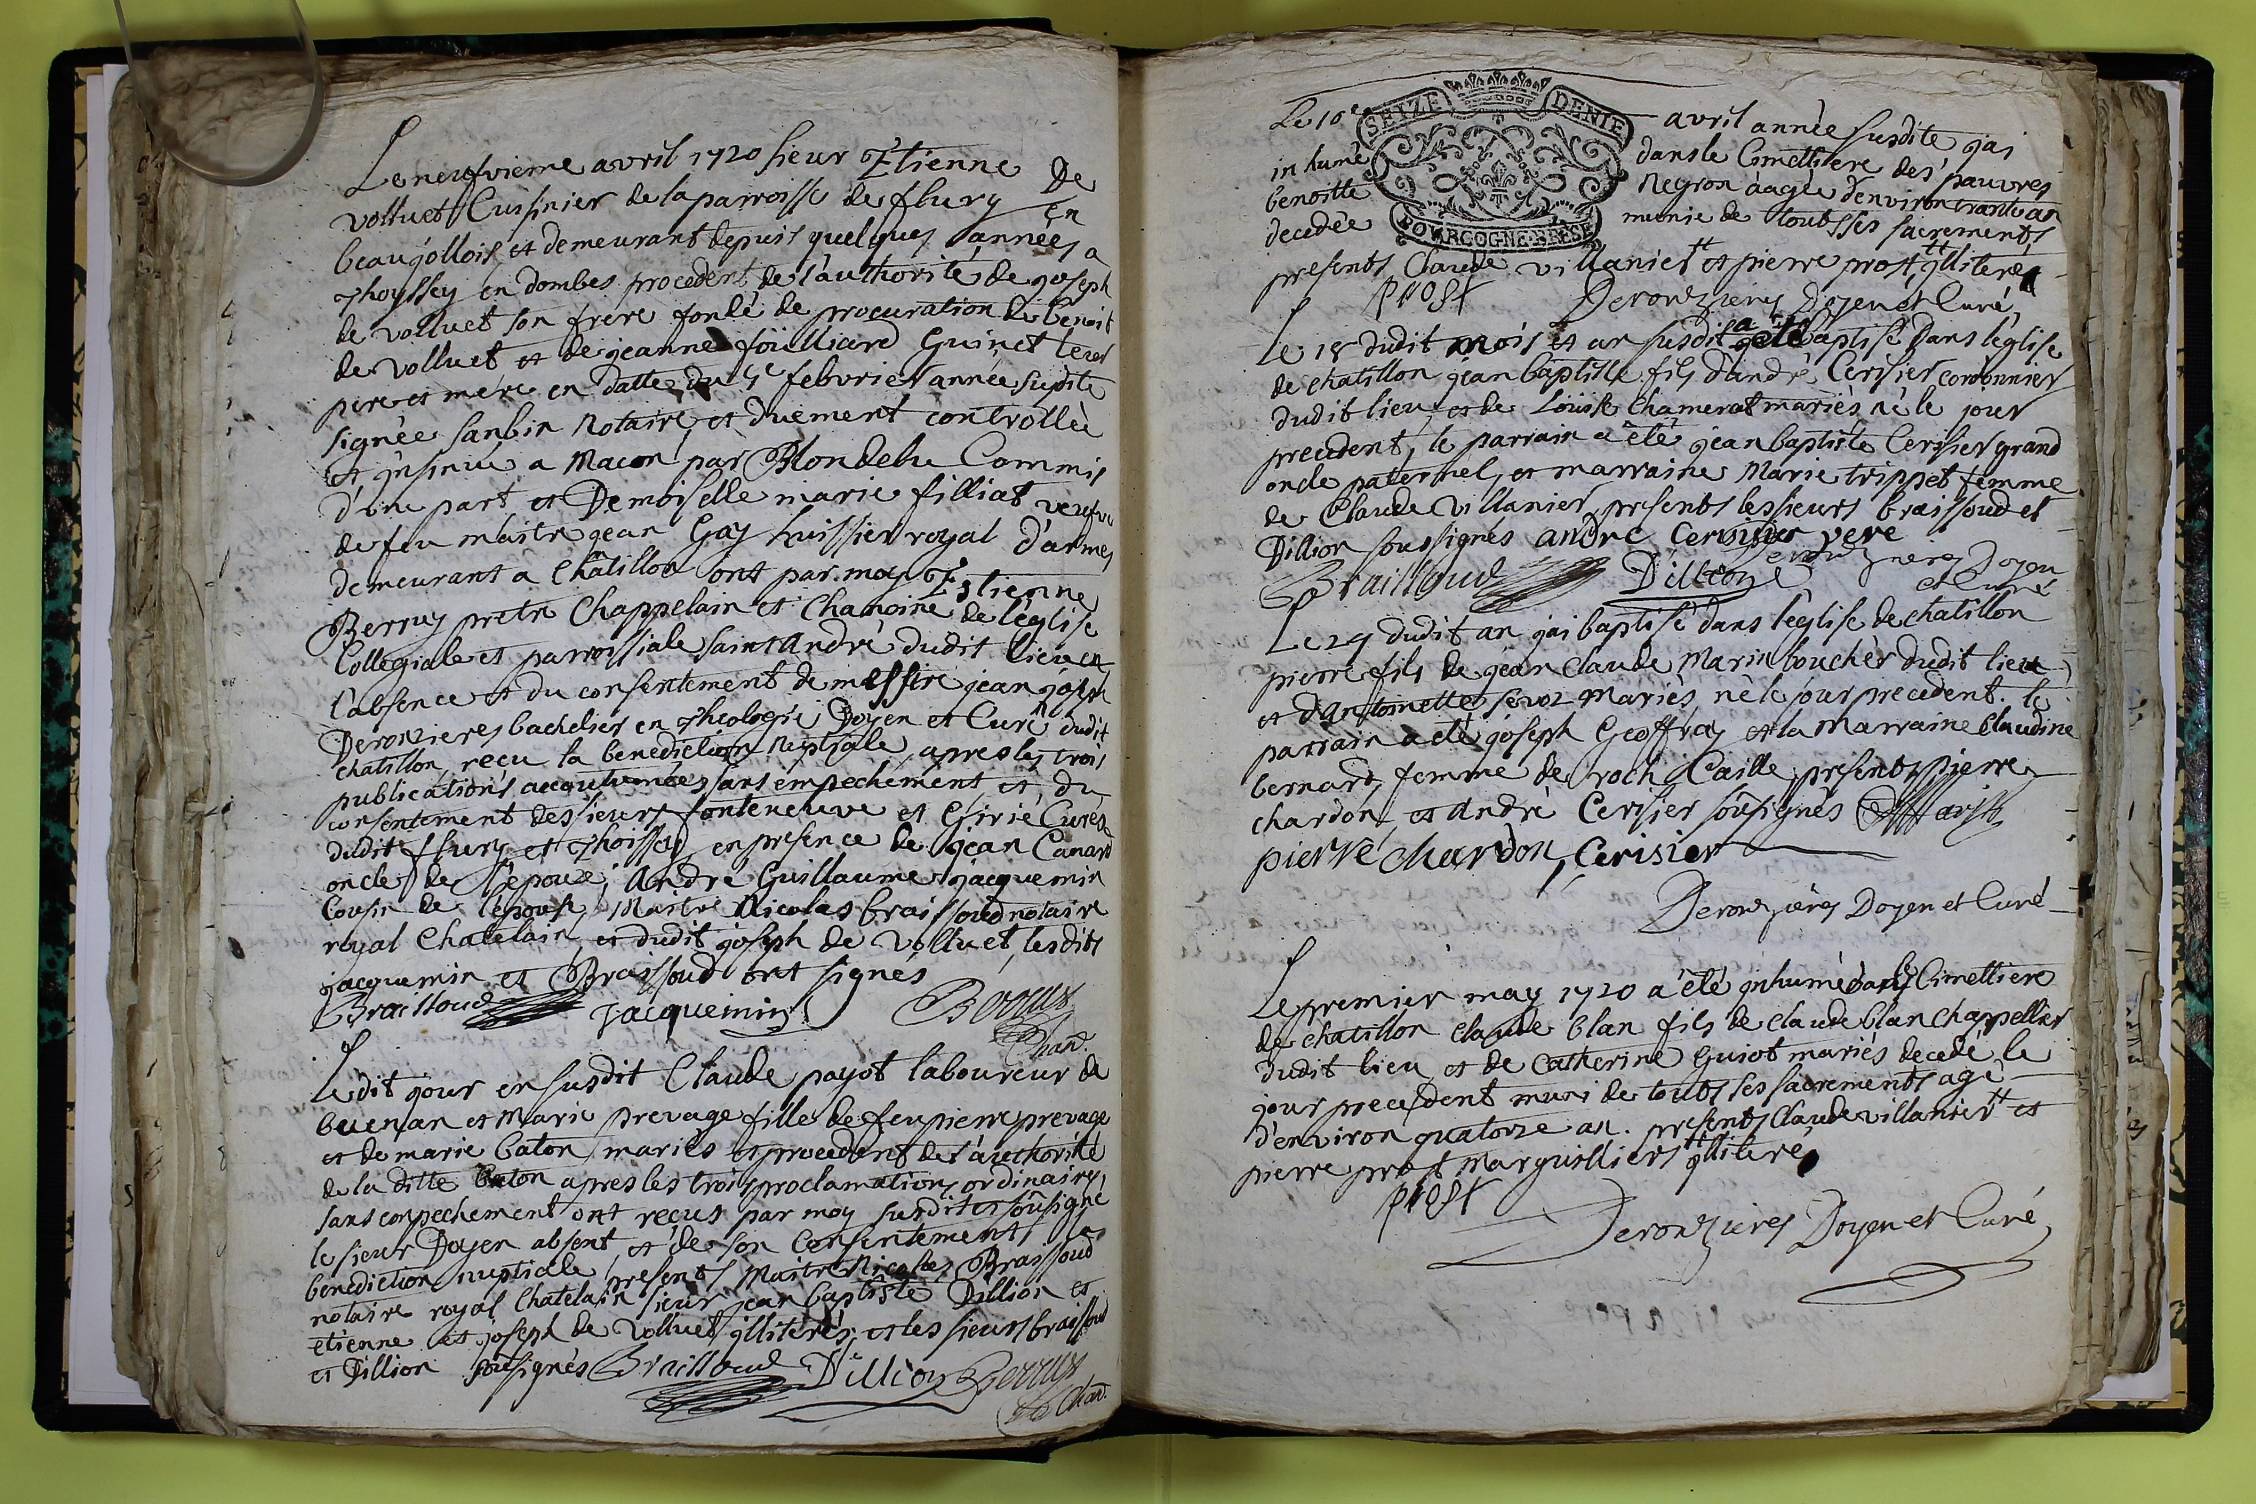 Le neufvieme avril 1720 sieur Etienne De
volluet Cuisinier de la parroisse de fleury en
beaujollois et demeurant depuis quelques années a
thoyssey en dombes procedent de l'authorité de joseph
de volluet son frere fondé de procuration de benoit
de volluet et de jeanne foüilliard Guinet leur
pere et mere en datte du 5e febvrier année susdite
signée sanbin Notaire, et duement controllée
et insinué a Macon par Blondel Commis
d'une part et Demoiselle marie filliat veufve
de feu maitre jean Gay huissier royal d'armes
demeurant a Châtillon ont par moy Estienne
Berruy pretre Chappelain et Chanoine de l'église
Collegiale et parroissiale saint André dudit lieu en
l'absence et du consentement de messire jean joseph
Deronzieres bachelier en theologie Doyen et Curé dudit
chatillon, reçu la benediction nuptiale, apres les trois
publications accoutumées sans empechement, et du
consentement des sieurs fonteneuve et Curés
dudit fleury et thoissey en presence de jean Canard
oncle de l'epouze, André Guillaume jacquemin
Cousin de l'épouse, Maitre Nicolas braissoud notaire
royal Chatelain, et dudit joseph de volluet, lesdits
jacquemin et Braissoud ont signés
Braissoud Jacquemin Berruy
Chan.
Le dit jour en susdit Claude payot laboureur de
buenan et Marie prevage fille de feu pierre prevage
et de marie Caton mariés et procedent de l'authorité
de la ditte Caton apres les trois proclamations ordinaires
sans empechement ont reçus par moy susdit et soûsigné
le sieur Doyen absent, et de son consentement, la
benediction nuptiale, presents Maitre Nicolas Braissoud
notaire royal Chatelain sieur jean baptiste Dillion et
etienne et joseph de volluet illiterés, et les sieurs braissoud
et Dillion sousignés Braissoud Dillion Berruy
Chan.
Le 16e SEIZE DENIE avril année susdite j'ai
inhumé dans le Cimettiere des pauvres
benoitte Negron aagée d'environ trante an
decedée BOURGOGNE BRESSE munie de touts ses sacrements
presents Claude villaniet et pierre prost illiteré
prost Deronzieres Doyen et Curé
Le 18 dudit mois et an susdit a été baptisé dans l'église
de chatillon jean baptiste fils d'andré Cerisier cordonnier
dudit lieu, et de Loüise Chamerat mariés né le jour
precedent, le parrain a été jean baptiste Cerisier grand
oncle paternel, et marraine Marie trippet femme
de Claude villanier, presents les sieurs braissoud et
Dillion soussignés andré Cerisier pere
Deronzieres Doyen
Braissoud Dillion et Curé
Le 29 dudit an j'ai baptisé dans l'église de chatillon
pierre fils de jean claude Marin boucher dudit lieu
et d'antoinette sevoz Mariés né le jour precedent. le
parrain a été joseph Geoffray et la Marraine Claudine
bernard, femme de roch Caille, presents pierre
chardon, et André Cerisier soûsignés
pierre chardon, Cerisier
Deronzieres Doyen et Curé
Le premier may 1720 a été inhumé dans le Cimettiere
de chatillon claude blan fils de claude blan chappellier
dudit lieu, et de Catherine Guiot mariés decedé le
jour precedent muni de touts ses sacrements agé
d'environ quatorze an. presents Claude villanier et
pierre prost Marguilliers illiteré
prost
Deronzieres Doyen et Curé